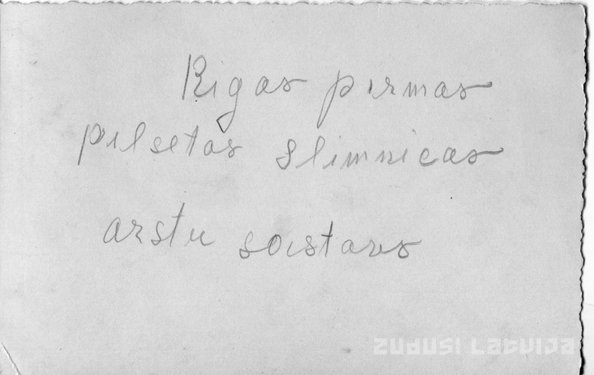 Rigas pirmas
pilsetas slimnicas
arstu soistavs
ZUDUSI LATVIJA